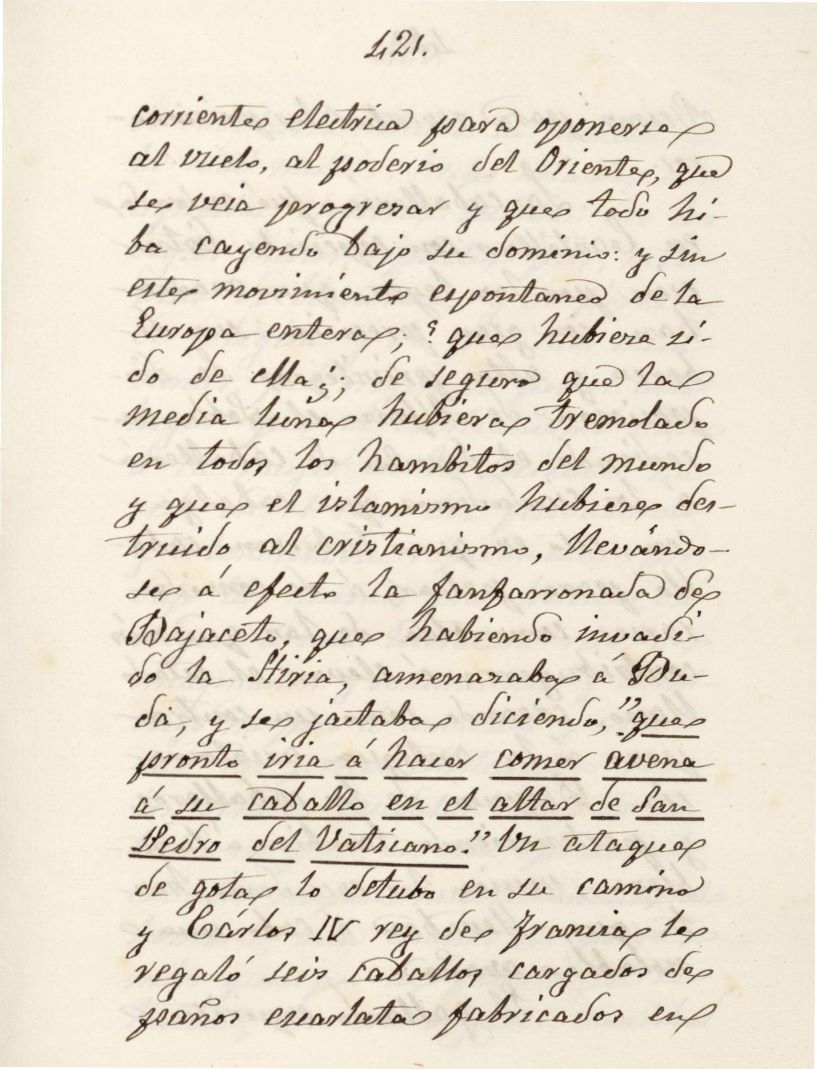 421.
corriente electrica para oponerse
al vuelo, al poderio del Oriente, que
se veia progresar y que todo hi-
ba cayendo bajo su dominio: y sin
este movimiento espontaneo de la
Europa entera; ? que hubiere si-
do de ella ¿; de seguro que la
media luna hubiera tremolado
en todos los hambitos del mundo
y que el islamismo hubiere des-
truido al cristianismo, llevándo-
se á efecto la fanfarronada de
Bajaceto, que habiendo invadi-
do la Stiria, amenazaba á Bu-
da, y se jactaba diciendo, "que
pronto iria á hacer comer avena
á su caballo en el altar de San
Pedro del Vaticano." Un ataque
de gota lo detubo en su camino
y Cárlos IV rey de Francia le
regaló seis caballos cargados de
paños escarlata fabricados en